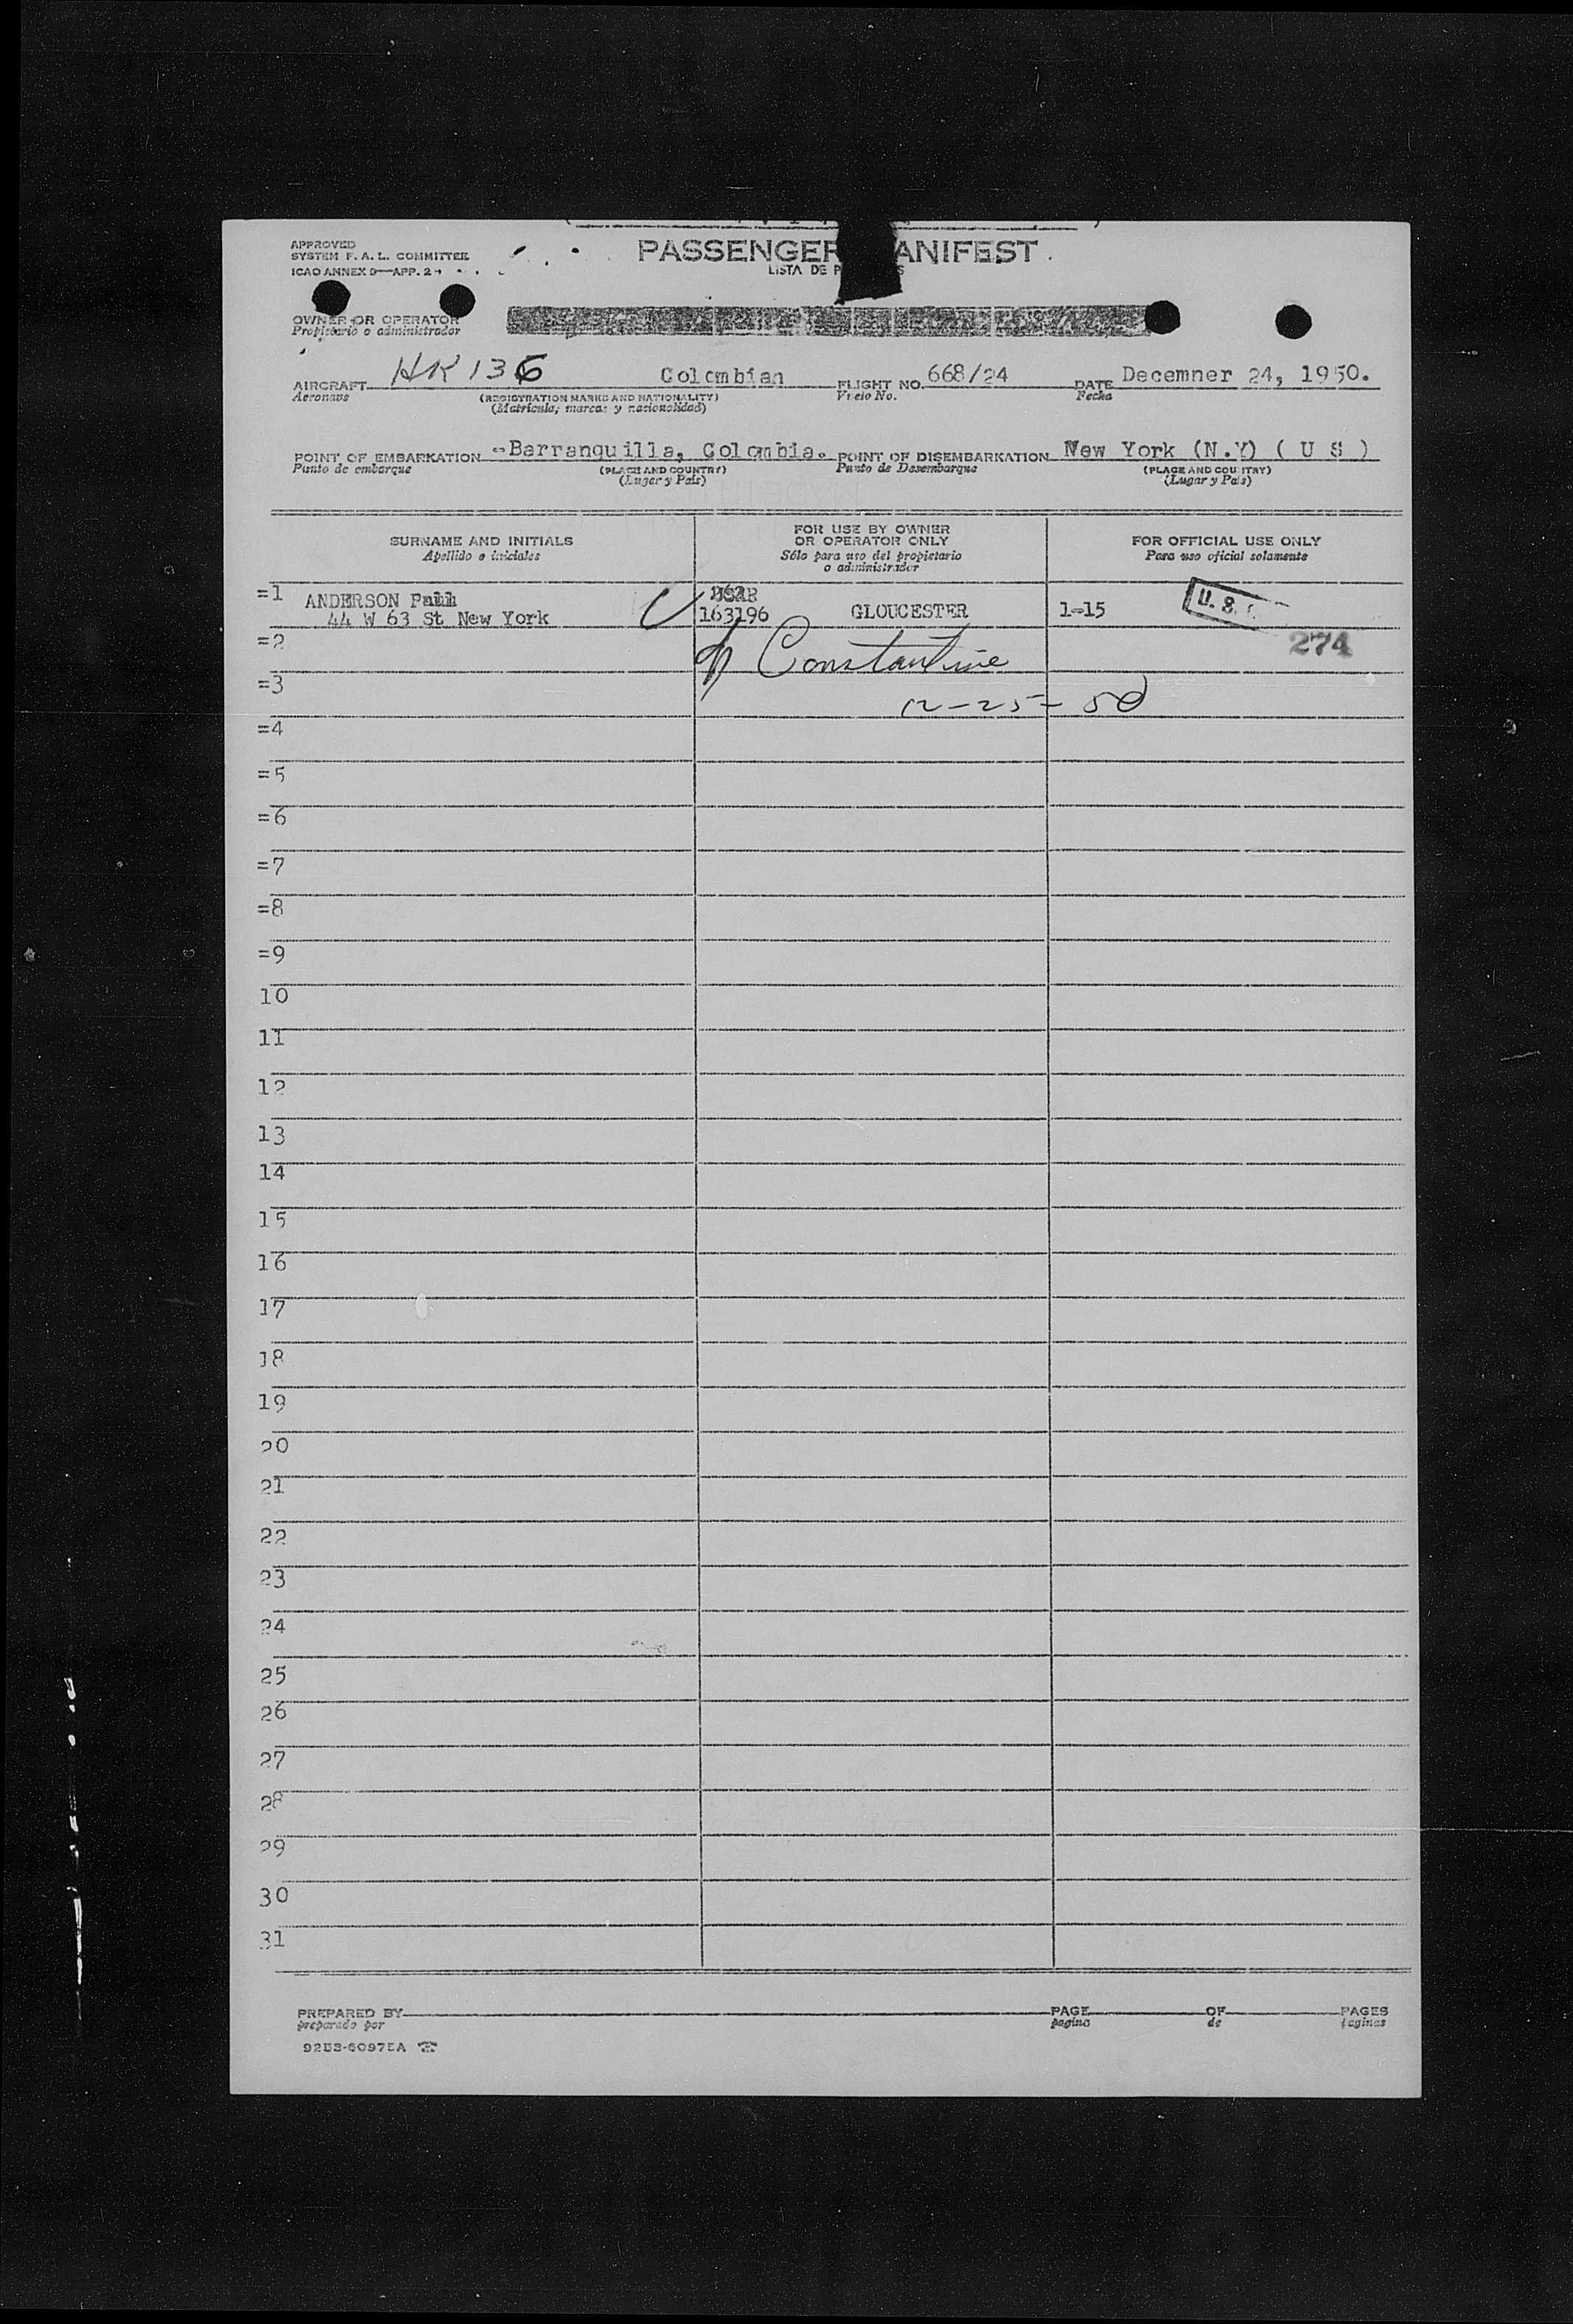 PASSENGER ANIFEST
LISTA DE P S
APPROVED
SYSTEM F. A. L. COMMITTEE
ICAO ANNEX 9—APP. 2
OWNER OR OPERATOR
Propietario o administrador
AIRCRAFT HK 136 Colombian FLIGHT NO. 668/24 DATE Decemner 24, 1950.
Aeronave (REGISTRATION MARKS AND NATIONALITY) Vuelo No. Fecha
(Matrícula, marcas y nacionalidad)
POINT OF EMBARKATION Barranquilla, Colombia. POINT OF DISEMBARKATION New York (N.Y) ( U S )
Punto de embarque (PLACE AND COUNTRY) Punto de Desembarque (PLACE AND COUNTRY)
(Lugar y País) (Lugar y País)
SURNAME AND INITIALS FOR USE BY OWNER OR OPERATOR ONLY FOR OFFICIAL USE ONLY
Apellido e iniciales Sólo para uso del propietario o administrador Para uso oficial solamente
=1 ANDERSON
44 W 63 St New York 163196 GLOUCESTER 1-15 U. S.
=2 Constantine 274
=3 12-25-50
=4
=5
=6
=7
=8
=9
10
11
12
13
14
15
16
17
18
19
20
21
22
23
24
25
26
27
28
29
30
31
PREPARED BY PAGE OF PAGES
preparado por pagina de paginas